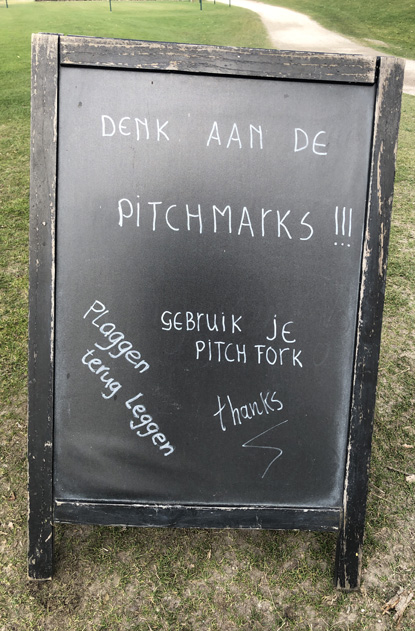 DENK AAN DE
PITCHMARKS !!!
GEBRUIK JE
PITCH FORK
Plaggen
terug leggen
thanks